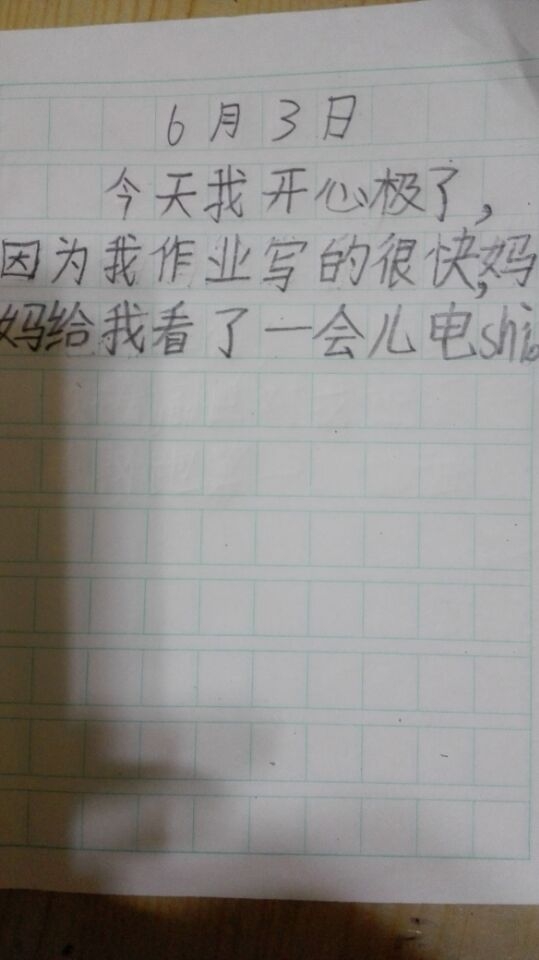 6月3日
今天我开心极了，
因为我作业写的很快，妈
妈给我看了一会儿电shi。